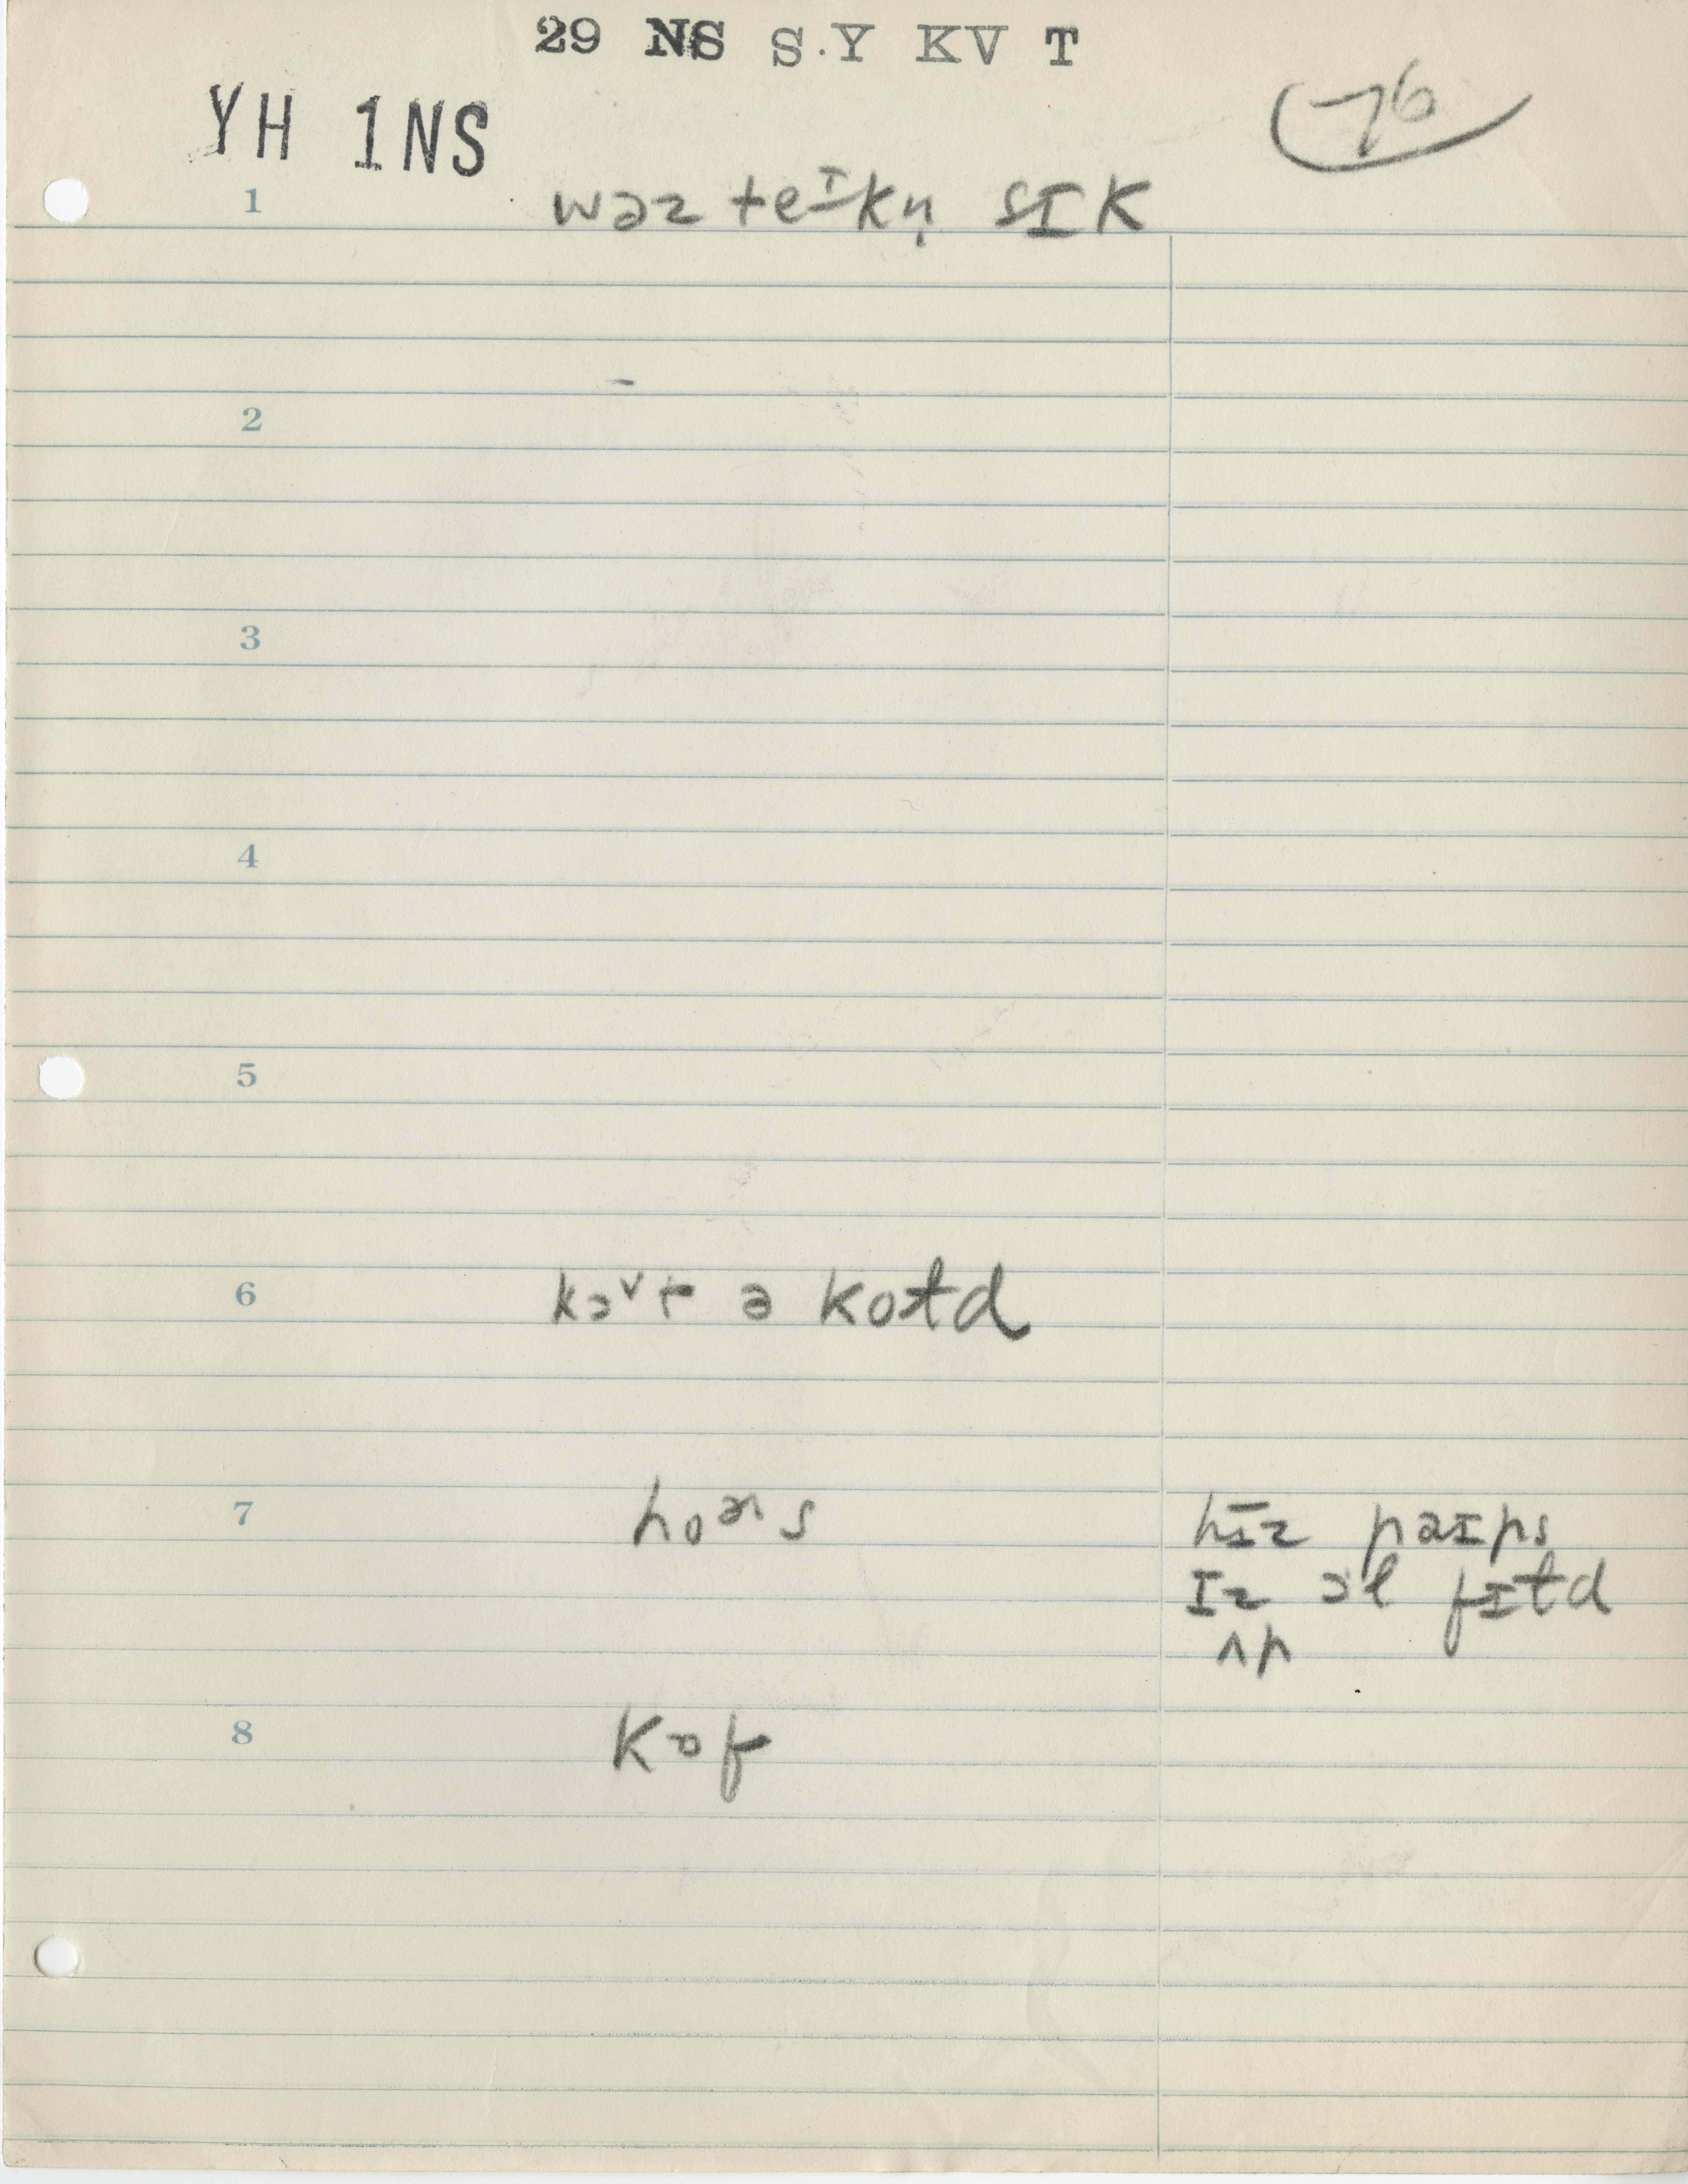 29 NS S.Y KV T
YH 1NS
76
1 wəz teᴵkn̩ sɪk
2
3
4
5
6 kɔᵛt ə kotd
7 hoᵊʳs hɪz paɪps
ɪz ɔl fɪtd
ʌp
8 kɔf